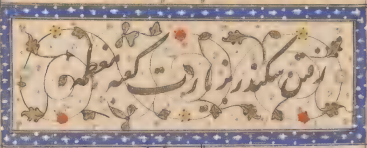 رفتن سکندر بزیارت کعبه معظمه